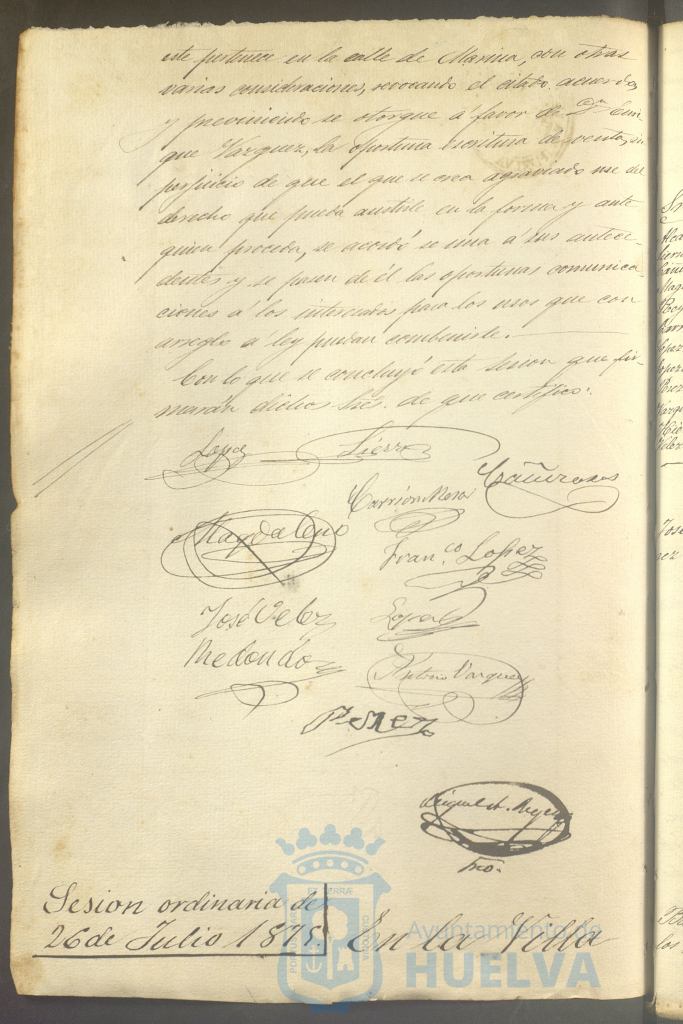 este pertenece en la calle de Marina, con otras
varias consideraciones, revocando el citado acuerdo,
y previniendo se otorgue á favor de Dn Enri
que Vazquez, la oportuna escritura de venta, sin
perjuicio de que el que se crea agraviado use del
derecho que pueda asistirle en la forma y ante
quien proceda, se acordó se una á sus antece-
dentes y se pasen de él las oportunas comunica-
ciones á los interesados para los usos que con
arreglo á ley puedan combenirle.
Con lo que se concluyó esta sesion que fir-
marán dichos Sres. de que certifico.
Lopez Sierra
Carrion Mora Cañizares
Magdaleno
Franco. Lopez
José Velez Lopez
Redondo
Antonio Vazquez
Perez
Miguel
Srio.
Sesion ordinaria de
26 de Julio 1875. En la Villa
Ayuntamiento de
HUELVA